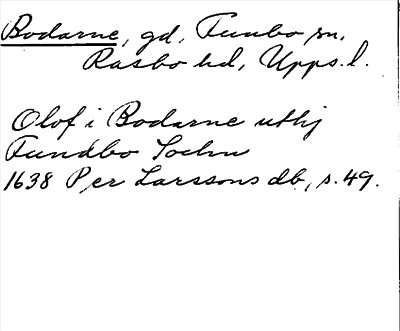 Bodarne, gd, Funbo sn,
Rasbo hd, Upps. l.
Olof i Bodarne uthj
Fundbo Sochn
1638 Per Larssons db, s. 49.